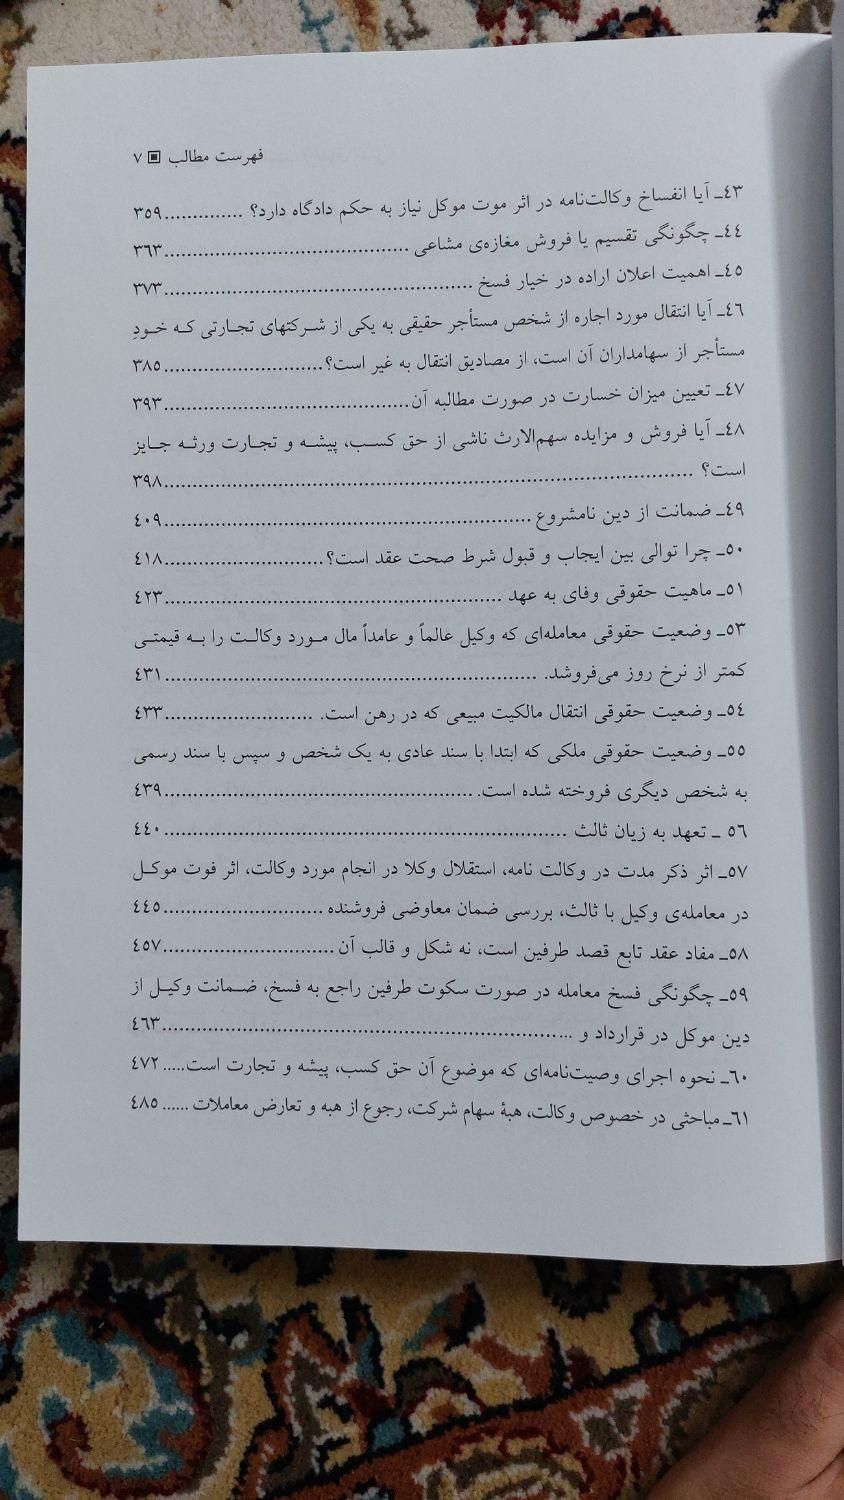 فهرست مطالب ▣ ۷
٤٣ـ آیا انفساخ وکالت‌نامه در اثر موت موکل نیاز به حکم دادگاه دارد؟ ..............٣٥٩
٤٤ـ چگونگی تقسیم یا فروش مغازه‌ی مشاعی ............................................٣٦٣
٤٥ـ اهمیت اعلان اراده در خیار فسخ ....................................................٣٧٣
٤٦ـ آیا انتقال مورد اجاره از شخص مستأجر حقیقی به یکی از شـرکتهای تجـارتی کـه خـودِ
مستأجر از سهامداران آن است، از مصادیق انتقال به غیر است؟............................٣٨٥
٤٧ـ تعیین میزان خسارت در صورت مطالبه آن...........................................٣٩٣
٤٨ـ آیا فروش و مزایده سهم‌الارث ناشی از حق کسـب، پیشـه و تجـارت ورثـه جـایز
است؟ ......................................................................................٣٩٨
٤٩ـ ضمانت از دین نامشروع ...............................................................٤٠٩
٥٠ـ چرا توالی بین ایجاب و قبول شرط صحت عقد است؟............................٤١٨
٥١ـ ماهیت حقوقی وفای به عهد ..........................................................٤٢٣
٥٣ـ وضعیت حقوقی معامله‌ای که وکیل عالماً و عامداً مال مـورد وکالـت را بـه قیمتـی
کمتر از نرخ روز می‌فروشد. ................................................................٤٣١
٥٤ـ وضعیت حقوقی انتقال مالکیت مبیعی که در رهن است. ..........................٤٣٣
٥٥ـ وضعیت حقوقی ملکی که ابتدا با سند عادی به یک شخص و سپس با سند رسمی
به شخص دیگری فروخته شده است. .....................................................٤٣٩
٥٦ ـ تعهد به زیان ثالث ....................................................................٤٤٠
٥٧ـ اثر ذکر مدت در وکالت نامه، استقلال وکلا در انجام مورد وکالت، اثر فوت موکـل
در معامله‌ی وکیل با ثالث، بررسی ضمان معاوضی فروشنده ............................٤٤٥
٥٨ـ مفاد عقد تابع قصد طرفین است، نه شکل و قالب آن ..............................٤٥٧
٥٩ـ چگونگی فسخ معامله در صورت سکوت طرفین راجع به فسخ، ضـمانت وکیـل از
دین موکل در قرارداد و ... ...................................................................٤٦٣
٦٠ـ نحوه اجرای وصیت‌نامه‌ای که موضوع آن حق کسب، پیشه و تجارت است..... ٤٧٢
٦١ـ مباحثی در خصوص وکالت، هبهٔ سهام شرکت، رجوع از هبه و تعارض معاملات ...... ٤٨٥